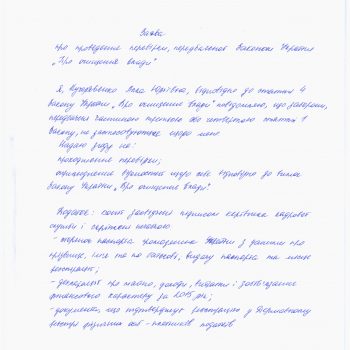 Заява
про проведення перевірки, передбаченої Законом України
„Про очищення влади"
Я, Юліївна, відповідно до статті 4
Закону України „Про очищення влади" повідомляю, що заборони,
передбачені частиною третьою або четвертою статті 1
Закону, не застосовуються щодо мене
Надаю згоду на:
проходження перевірки;
оприлюднення відомостей щодо себе відповідно до вимог
Закону України „Про очищення влади".
Додаток: копії завірені підписом керівника кадрової
служби і скріплені печаткою:
- сторінок паспорта громадянина України з даними про
прізвище, ім'я та по батькові, видачу паспорта та місце
реєстрації;
- декларації про майно, доходи, витрати і зобов'язання
фінансового характеру за 2015 рік;
- документа, що підтверджує реєстрацію у Державному
реєстрі фізичних осіб - платників податків